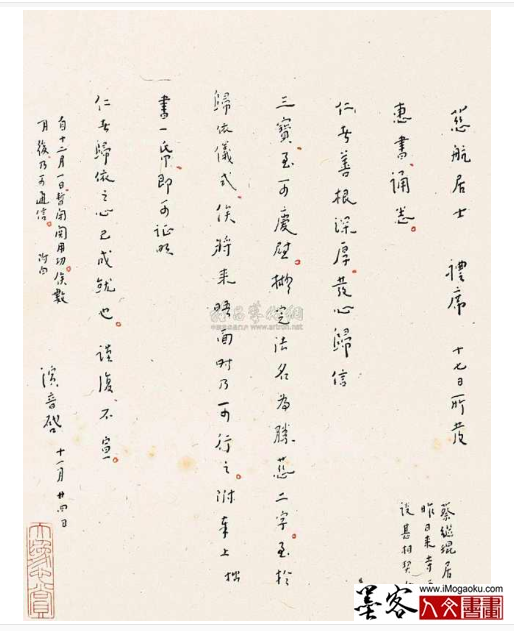 慈航居士 禮席 十七日所發
惠書誦悉。
仁者善根深厚。發心歸信
三寶。至可慶慰。擬定法名為勝慈二字。至於
歸依儀式。俟將來晤面時乃可行之。附奉上拙
書一帋即可証明
仁者歸依之心已成就也。謹復不宣。
自十二月一日暫閉關用功。俟數
月後。乃可通信。附白
演音啓 十一月廿四日
蔡繼琨居
昨日來寺
談甚相契
www.artron.net
墨客
www.iMogaoku.com
人文書畫